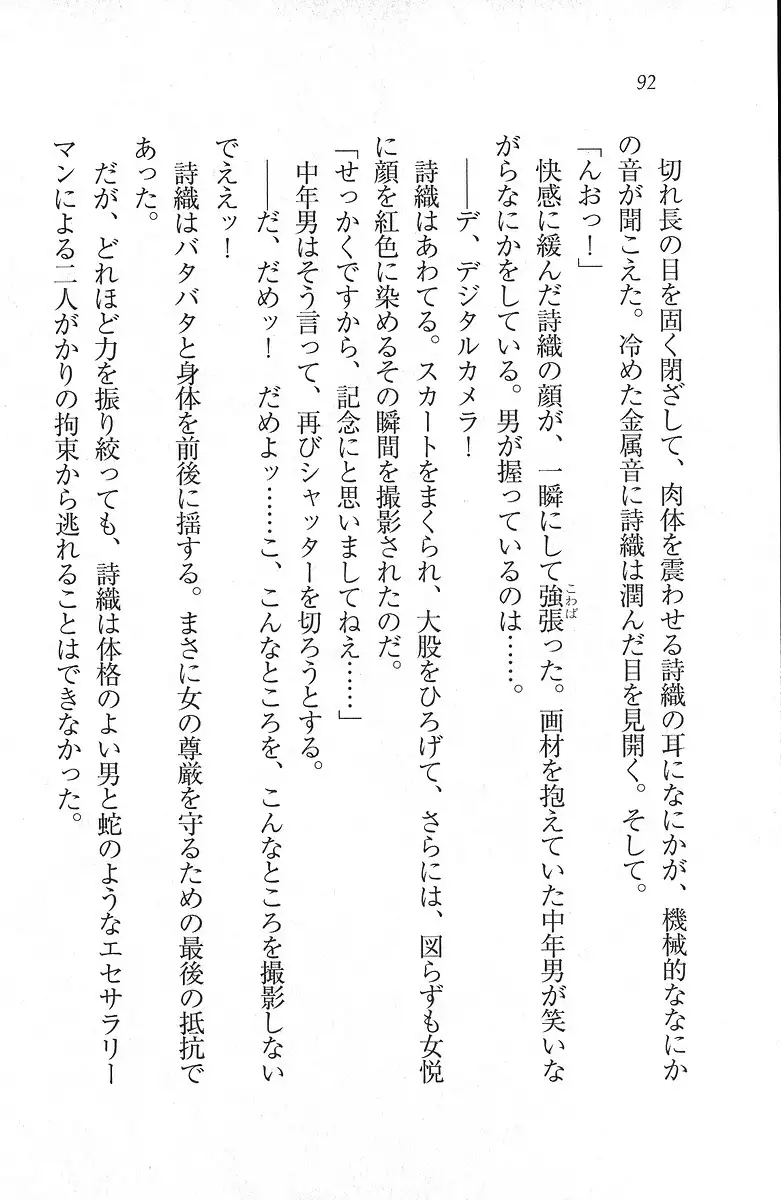 92
切れ長の目を固く閉ざして、肉体を震わせる詩織の耳になにかが、機械的ななにか
の音が聞こえた。冷めた金属音に詩織は潤んだ目を見開く。そして。
「んおっ！」
快感に緩んだ詩織の顔が、一瞬にして強張った。画材を抱えていた中年男が笑いな
こわば
がらなにかをしている。男が握っているのは……。
――デ、デジタルカメラ！
詩織はあわてる。スカートをまくられ、大股をひろげて、さらには、図らずも女悦
に顔を紅色に染めるその瞬間を撮影されたのだ。
「せっかくですから、記念にと思いましてねえ……」
中年男はそう言って、再びシャッターを切ろうとする。
――だ、だめッ！　だめよッ……こ、こんなところを、こんなところを撮影しない
でえぇッ！
詩織はバタバタと身体を前後に揺する。まさに女の尊厳を守るための最後の抵抗で
あった。
だが、どれほど力を振り絞っても、詩織は体格のよい男と蛇のようなエセサラリー
マンによる二人がかりの拘束から逃れることはできなかった。